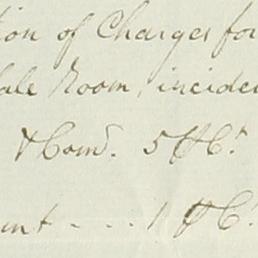 tion of Charges for
ale Room, incide
& Com. 5 ₱ Ct.
nt - - - 1 ₱ Ct.